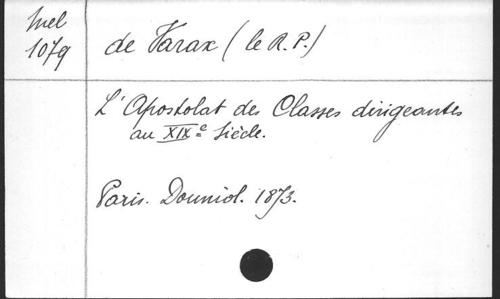 Mel
1079
de Varax (le R. P.)
L'Apostolat des Classes dirigeantes
au XIXe Siècle.
Paris. Douniol. 1873.